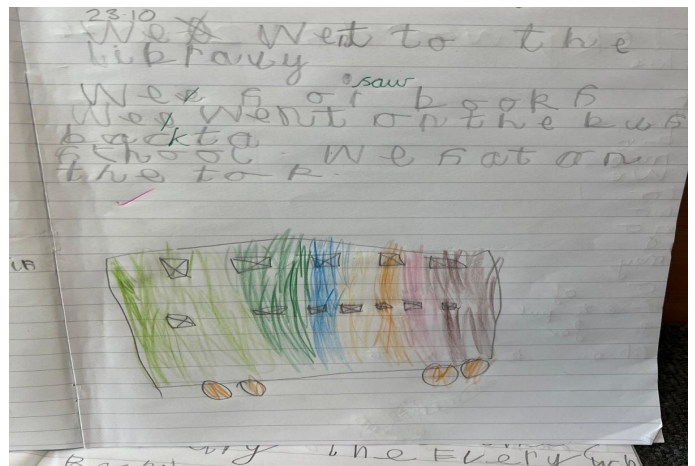 23 10
Wex Went to the
library
saw
Wex s or books
Wex went on the bus
backto
school. We sat on
the top.
the Every